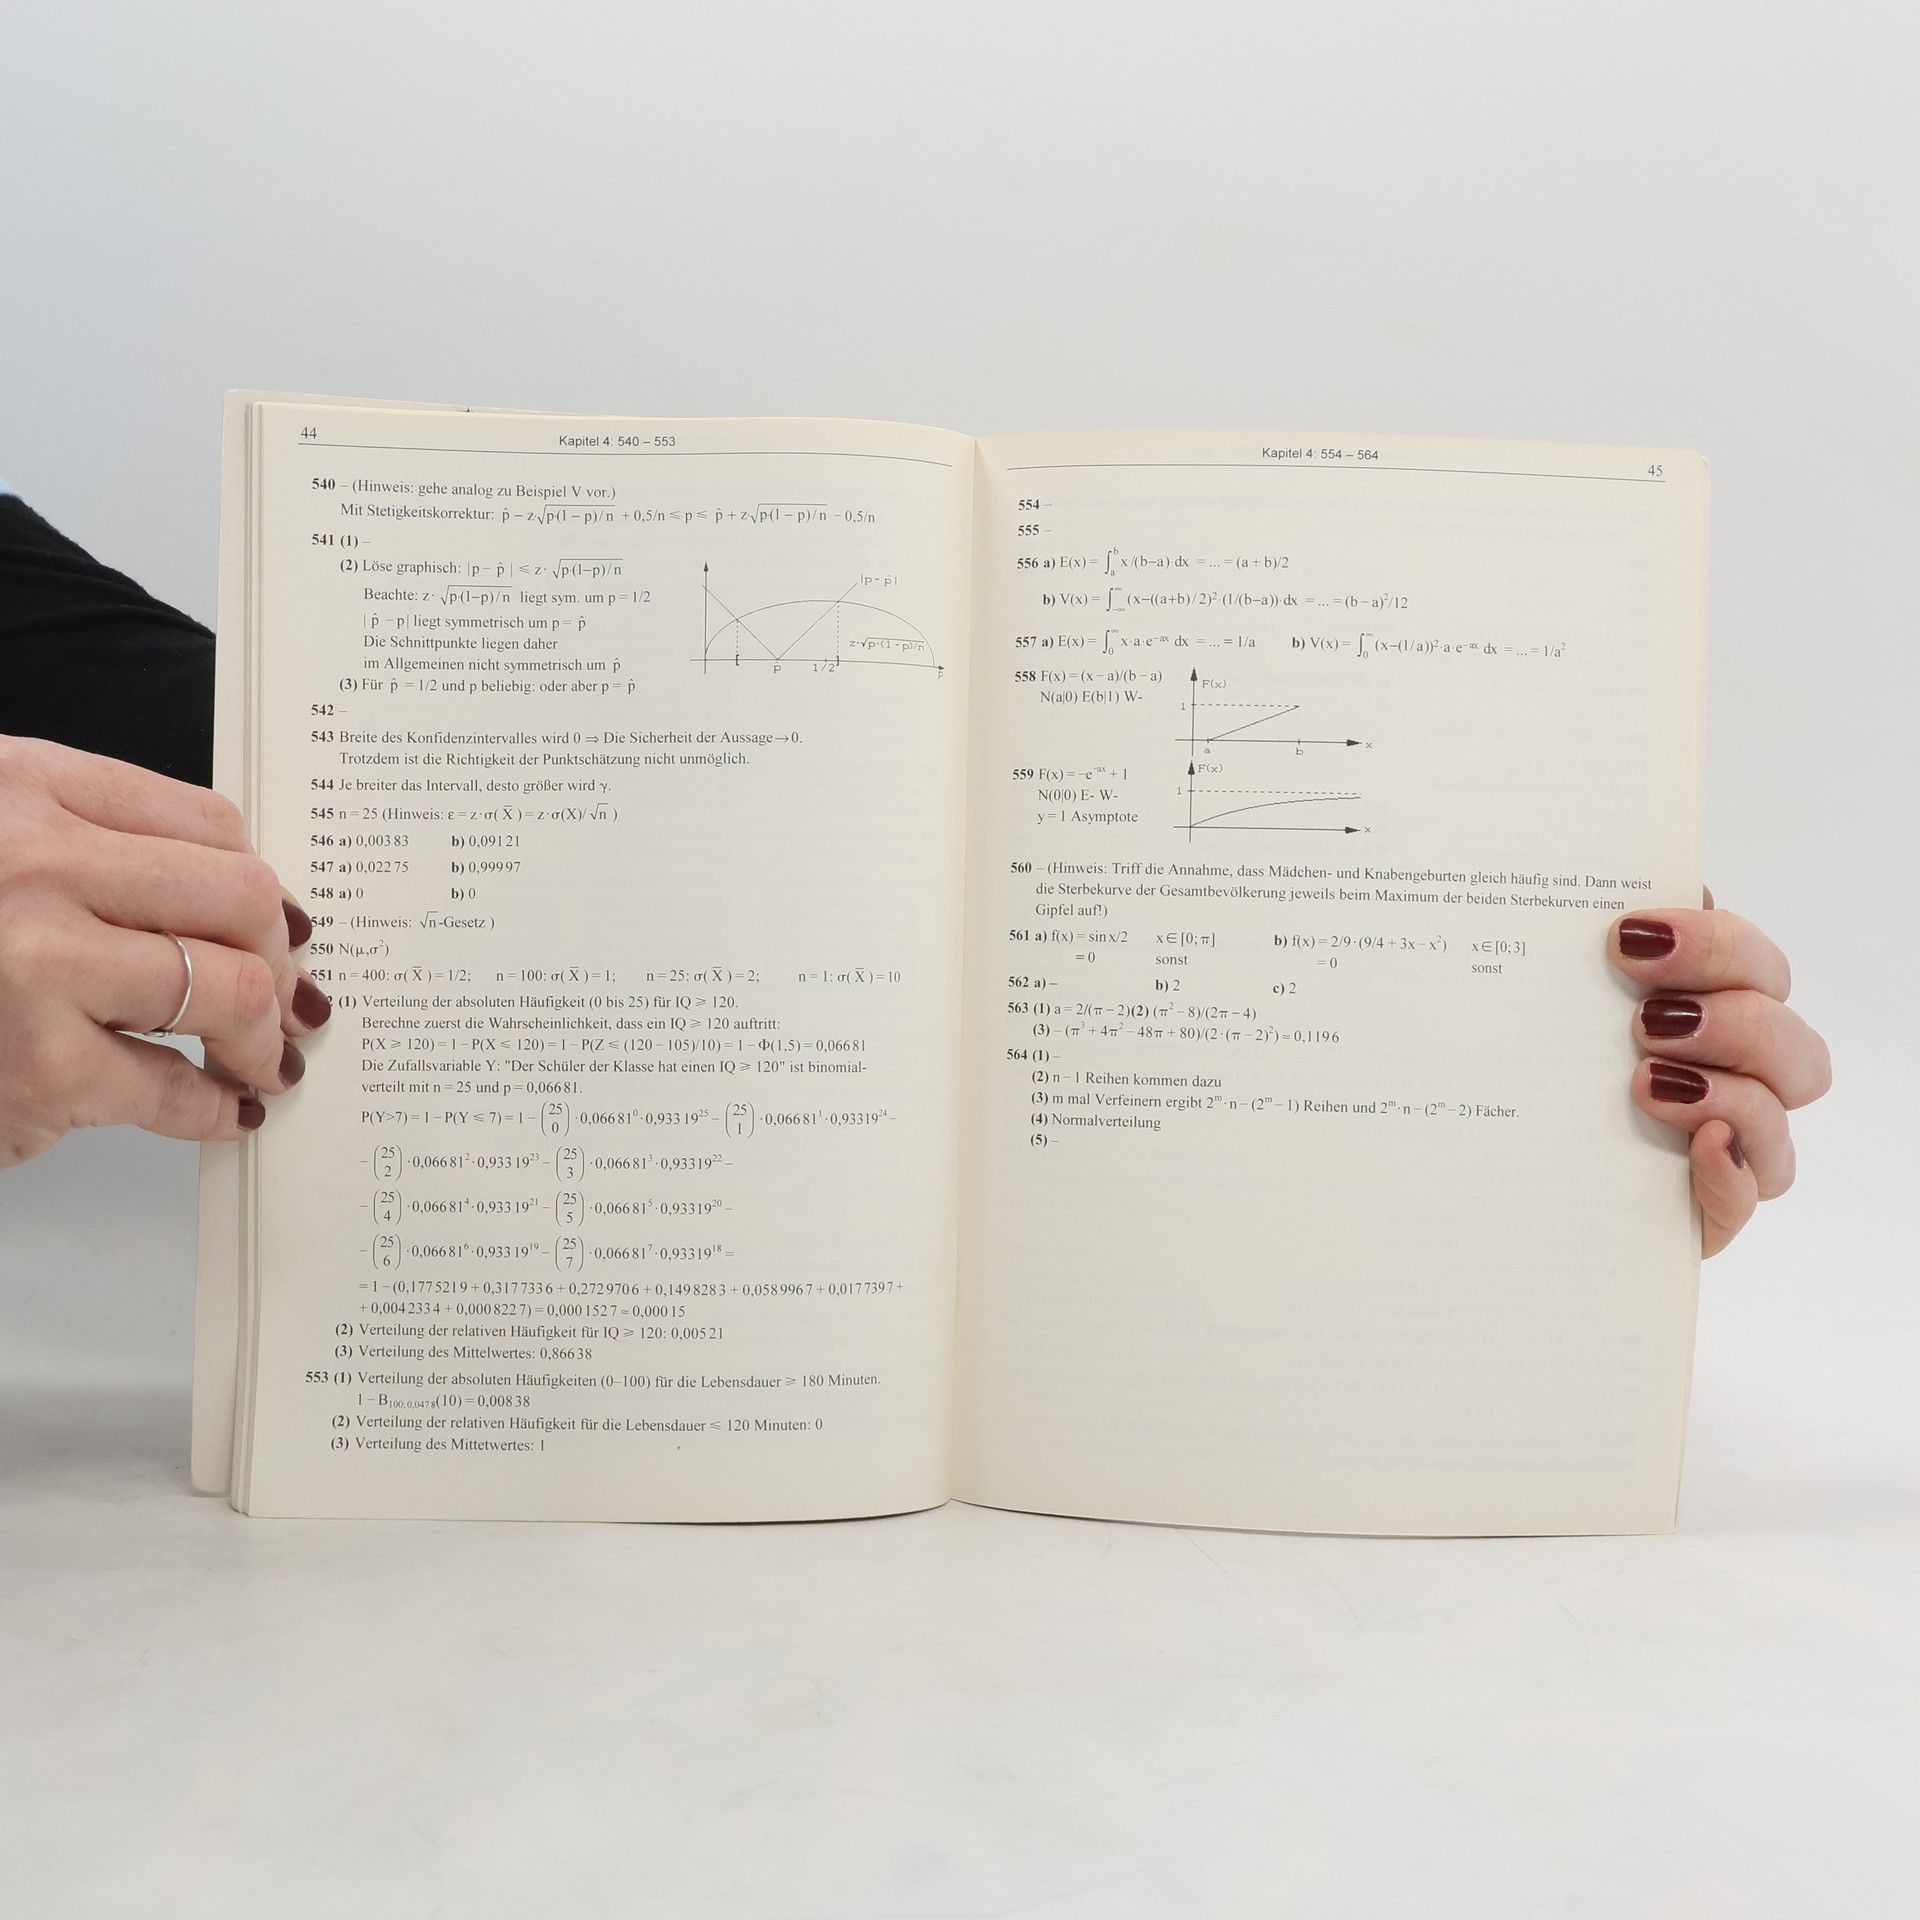 44
Kapitel 4: 540 – 553
540 – (Hinweis: gehe analog zu Beispiel V vor.)
Mit Stetigkeitskorrektur: p̂ – z·√p·(1 – p)/n + 0,5/n ⩽ p ⩽ p̂ + z·√p·(1 – p)/n – 0,5/n
541 (1) –
(2) Löse graphisch: |p – p̂ | ⩽ z· √p·(1–p)/n
Beachte: z· √p·(1–p)/n liegt sym. um p = 1/2
| p̂ – p| liegt symmetrisch um p = p̂
Die Schnittpunkte liegen daher
im Allgemeinen nicht symmetrisch um p̂
(3) Für p̂ = 1/2 und p beliebig: oder aber p = p̂
|p-p̂|
z·√p·(1-p)/n
p 1/2 p
542 –
543 Breite des Konfidenzintervalles wird 0 ⇒ Die Sicherheit der Aussage→0.
Trotzdem ist die Richtigkeit der Punktschätzung nicht unmöglich.
544 Je breiter das Intervall, desto größer wird γ.
545 n = 25 (Hinweis: ε = z·σ( X̅ ) = z·σ(X)/ √n )
546 a) 0,003 83 b) 0,091 21
547 a) 0,022 75 b) 0,999 97
548 a) 0 b) 0
549 – (Hinweis: √n-Gesetz )
550 N(μ,σ²)
551 n = 400: σ( X̅ ) = 1/2; n = 100: σ( X̅ ) = 1; n = 25: σ( X̅ ) = 2; n = 1: σ( X̅ ) = 10
2 (1) Verteilung der absoluten Häufigkeit (0 bis 25) für IQ ⩾ 120.
Berechne zuerst die Wahrscheinlichkeit, dass ein IQ ⩾ 120 auftritt:
P(X ⩾ 120) = 1 – P(X ⩽ 120) = 1 – P(Z ⩽ (120 – 105)/10) = 1 – Φ(1,5) = 0,066 81
Die Zufallsvariable Y: "Der Schüler der Klasse hat einen IQ ⩾ 120" ist binomial-
verteilt mit n = 25 und p = 0,066 81.
P(Y>7) = 1 – P(Y ⩽ 7) = 1 – (25 0) ·0,066 81⁰·0,933 19²⁵ – (25 1) ·0,066 81¹·0,93319²⁴ –
– (25 2) ·0,066 81²·0,933 19²³ – (25 3) ·0,066 81³·0,93319²² –
– (25 4) ·0,066 81⁴·0,933 19²¹ – (25 5) ·0,066 81⁵·0,93319²⁰ –
– (25 6) ·0,066 81⁶·0,933 19¹⁹ – (25 7) ·0,066 81⁷·0,93319¹⁸ =
= 1 – (0,177 521 9 + 0,317 733 6 + 0,272 970 6 + 0,149 828 3 + 0,058 996 7 + 0,017 739 7 +
+ 0,004 233 4 + 0,000 822 7) = 0,000 152 7 ≈ 0,000 15
(2) Verteilung der relativen Häufigkeit für IQ ⩾ 120: 0,005 21
(3) Verteilung des Mittelwertes: 0,866 38
553 (1) Verteilung der absoluten Häufigkeiten (0–100) für die Lebensdauer ⩾ 180 Minuten.
1 – B100; 0,047 8(10) = 0,008 38
(2) Verteilung der relativen Häufigkeit für die Lebensdauer ⩽ 120 Minuten: 0
(3) Verteilung des Mittetwertes: 1
Kapitel 4: 554 – 564
45
554 –
555 –
556 a) E(x) = ∫ₐᵇ x/(b–a)·dx = ... = (a + b)/2
b) V(x) = ∫₋∞^∞ (x–((a+b)/2)²·(1/(b–a))·dx = ... = (b – a)²/12
557 a) E(x) = ∫₀^∞ x·a·e⁻ᵃˣ dx = ... = 1/a b) V(x) = ∫₀^∞ (x–(1/a))²·a·e⁻ᵃˣ dx = ... = 1/a²
558 F(x) = (x – a)/(b – a)
N(a|0) E(b|1) W-
F(x)
1
a b x
559 F(x) = –e⁻ᵃˣ + 1
N(0|0) E- W-
y = 1 Asymptote
F(x)
1
x
560 – (Hinweis: Triff die Annahme, dass Mädchen- und Knabengeburten gleich häufig sind. Dann weist
die Sterbekurve der Gesamtbevölkerung jeweils beim Maximum der beiden Sterbekurven einen
Gipfel auf!)
561 a) f(x) = sin x/2 x∈[0; π] b) f(x) = 2/9·(9/4 + 3x – x²) x∈[0; 3]
= 0 sonst = 0 sonst
562 a) – b) 2 c) 2
563 (1) a = 2/(π – 2)(2) (π² – 8)/(2π – 4)
(3) – (π³ + 4π² – 48π + 80)/(2·(π – 2)²) ≈ 0,119 6
564 (1) –
(2) n – 1 Reihen kommen dazu
(3) m mal Verfeinern ergibt 2ᵐ·n – (2ᵐ – 1) Reihen und 2ᵐ·n – (2ᵐ – 2) Fächer.
(4) Normalverteilung
(5) –